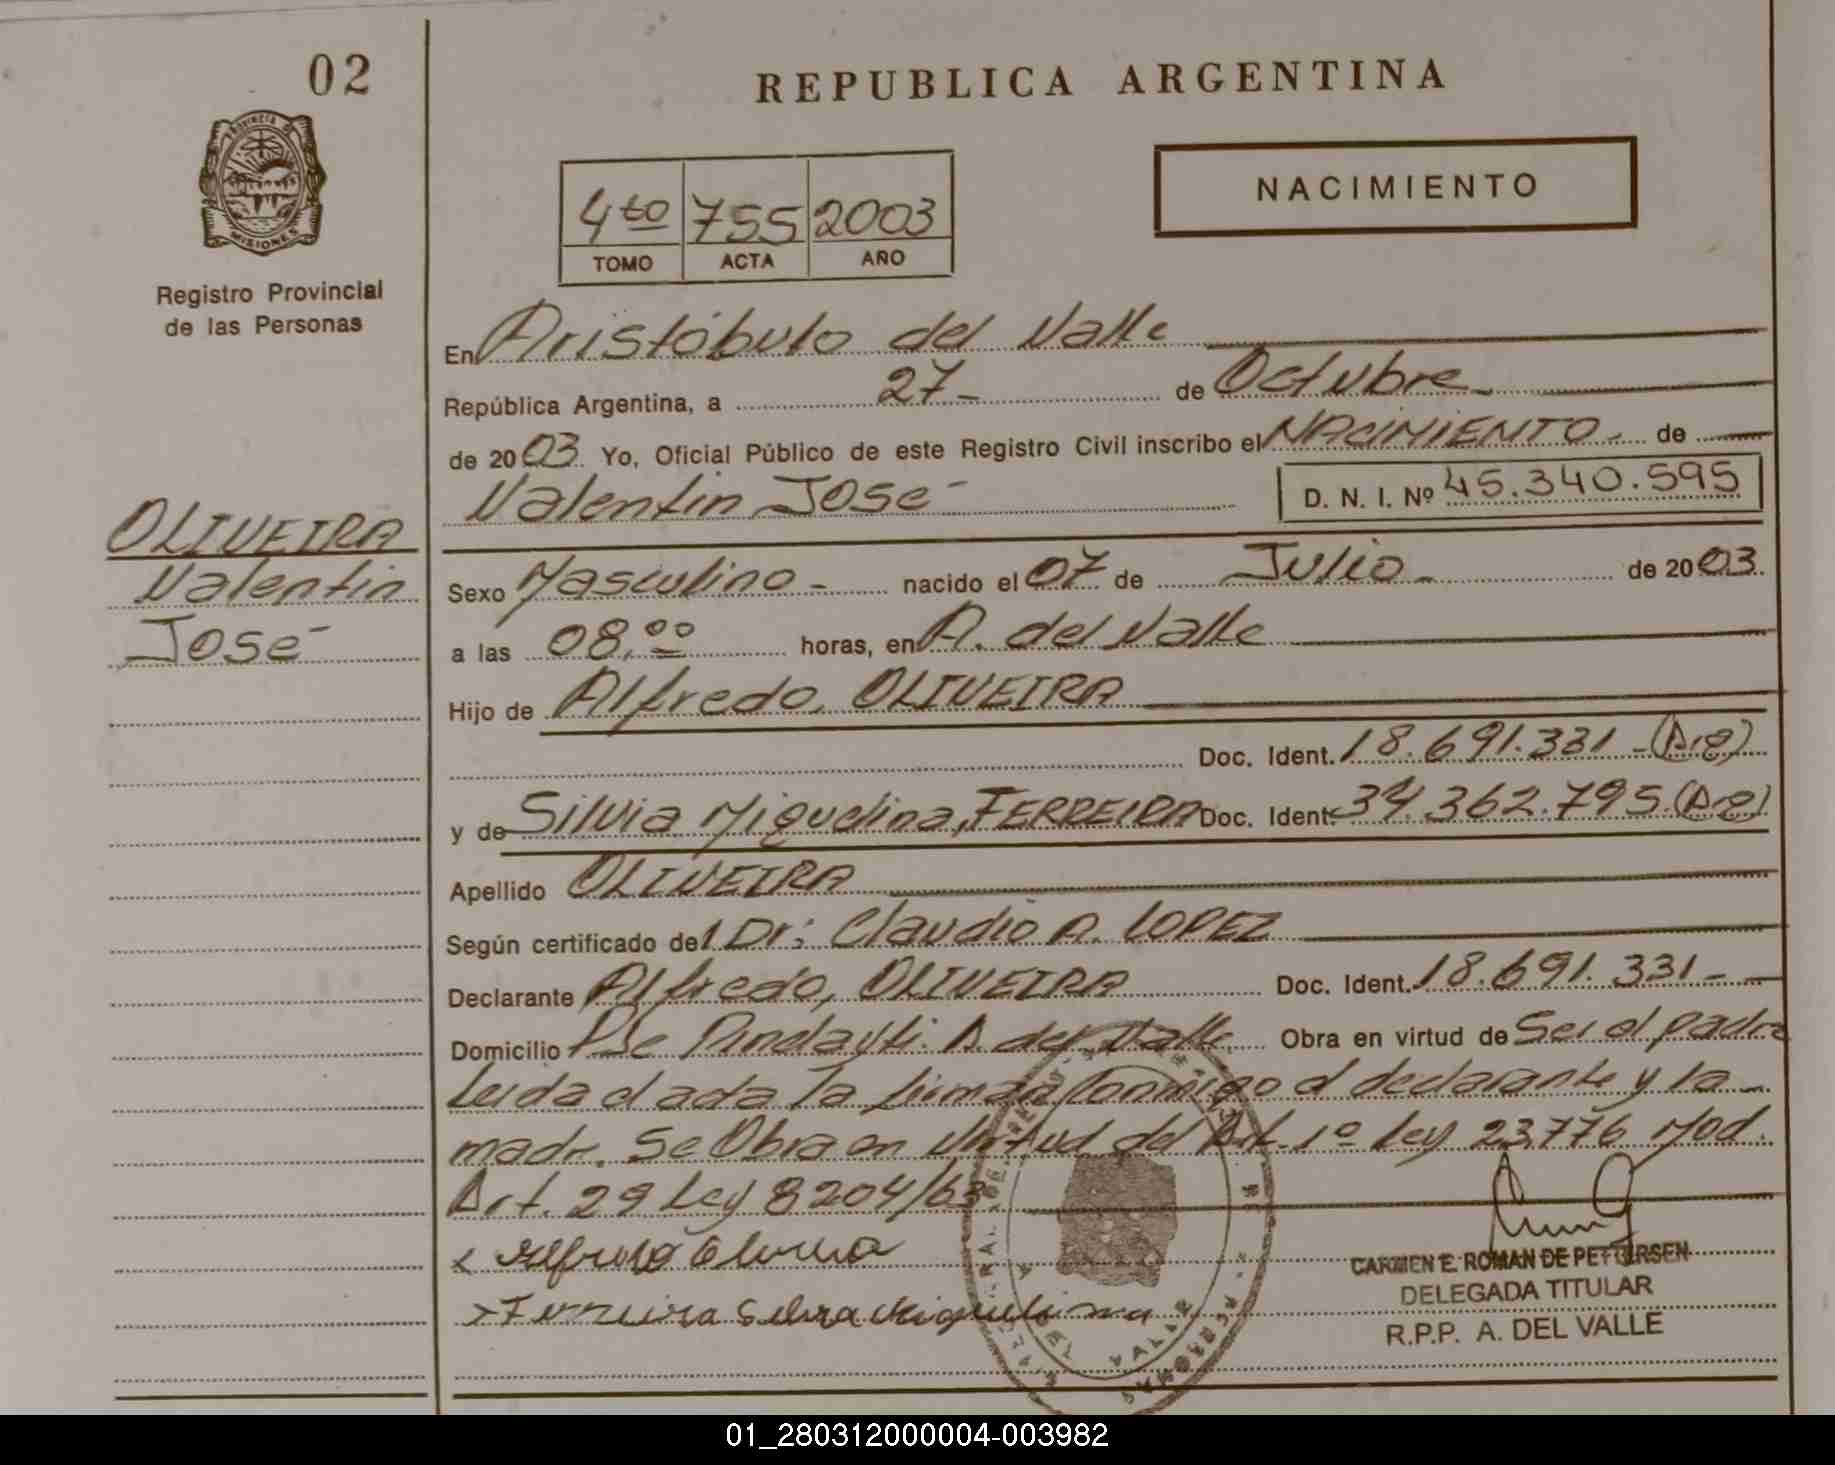 02
PROVINCIA DE
MISIONES
Registro Provincial
de las Personas
OLIVEIRA
Valentin
José
REPUBLICA ARGENTINA
4to 755 2003
TOMO ACTA AÑO
NACIMIENTO
En Aristóbulo del Valle
República Argentina, a 27 de Octubre
de 2003 Yo, Oficial Público de este Registro Civil inscribo el NACIMIENTO de
Valentin José D. N. I. Nº 45.340.595
Sexo Masculino nacido el 07 de Julio de 2003
a las 08,00 horas, en A. del Valle
Hijo de Alfredo, OLIVEIRA
Doc. Ident. 18.691.331 (Arg)
y de Silvia Miguelina, FERREIRA Doc. Ident. 34.362.795 (Arg)
Apellido OLIVEIRA
Según certificado del Dr: Claudio A. LOPEZ
Declarante Alfredo, OLIVEIRA Doc. Ident. 18.691.331
Domicilio A. del Valle Obra en virtud de Ser el padre
Leida el acta la firman conmigo el declarante y la
madre. Se Obra en virtud del Art. 1º Ley 23776 Mod.
Art. 29 Ley 8204/63
Ferreira Silvia Miguelina
CARMEN E. ROMAN DE PETTERSEN
DELEGADA TITULAR
R.P.P. A. DEL VALLE
01_280312000004-003982